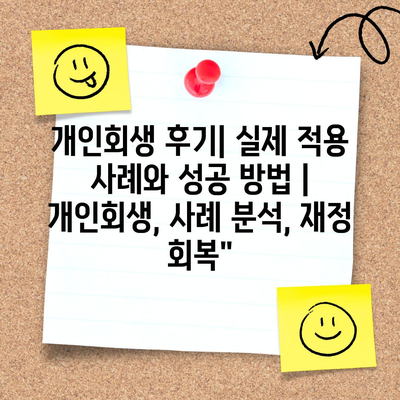 개인회생 후기| 실제 적용
사례와 성공 방법 |
개인회생, 사례 분석, 재정
회복"